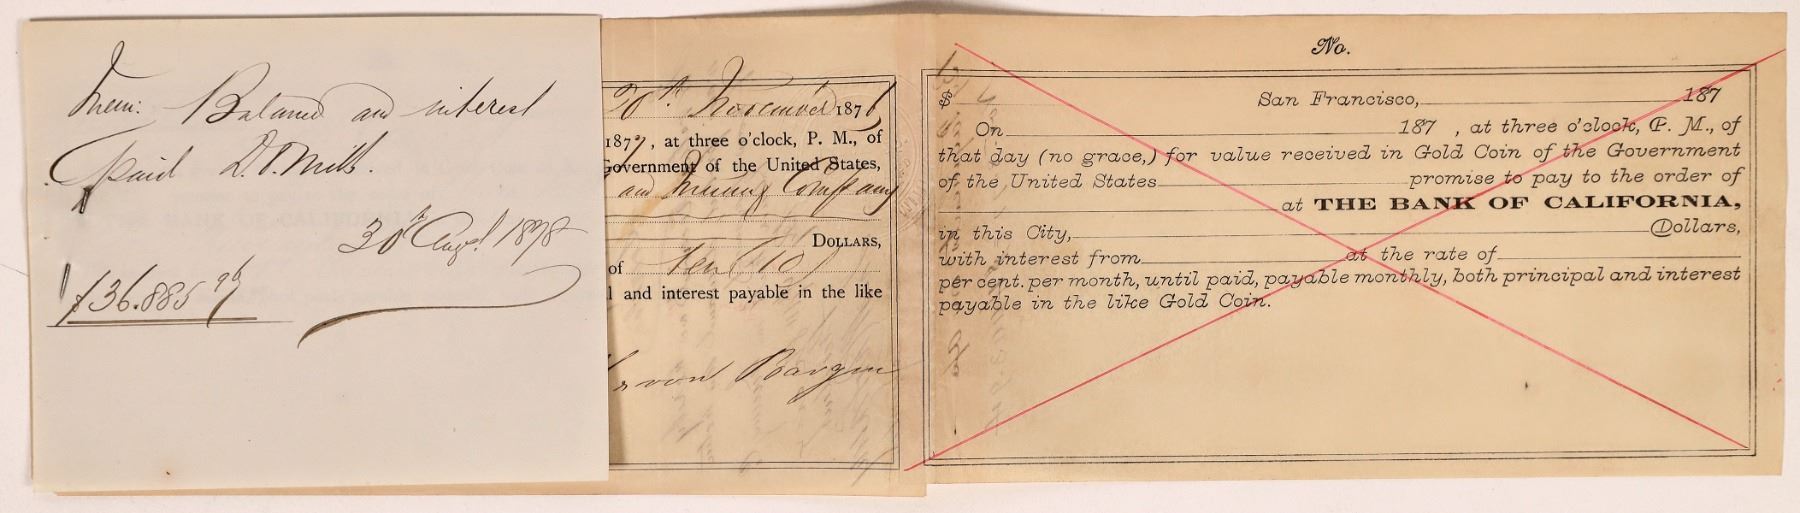 Mem: Balance and interest
paid D.O. Mills.
30th Augt 1878
$36.885 96
20th November 1876
1877, at three o'clock, P. M., of
Government of the United States,
and Mining Company
DOLLARS,
of Ten (10)
and interest payable in the like
No.
$ San Francisco, 187
On 187 , at three o'clock, P. M., of
that day (no grace,) for value received in Gold Coin of the Government
of the United States promise to pay to the order of
at THE BANK OF CALIFORNIA,
in this City, Dollars,
with interest from at the rate of
per cent. per month, until paid, payable monthly, both principal and interest
payable in the like Gold Coin.